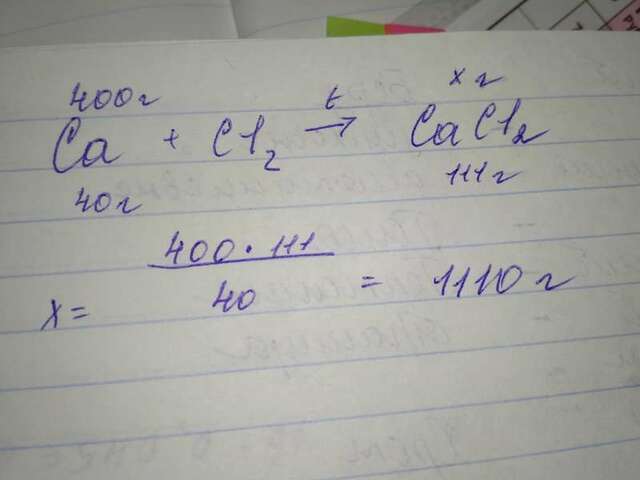 400г t х г
Ca + Cl2 → CaCl2
40г 111г
x = 400 · 111 / 40 = 1110 г